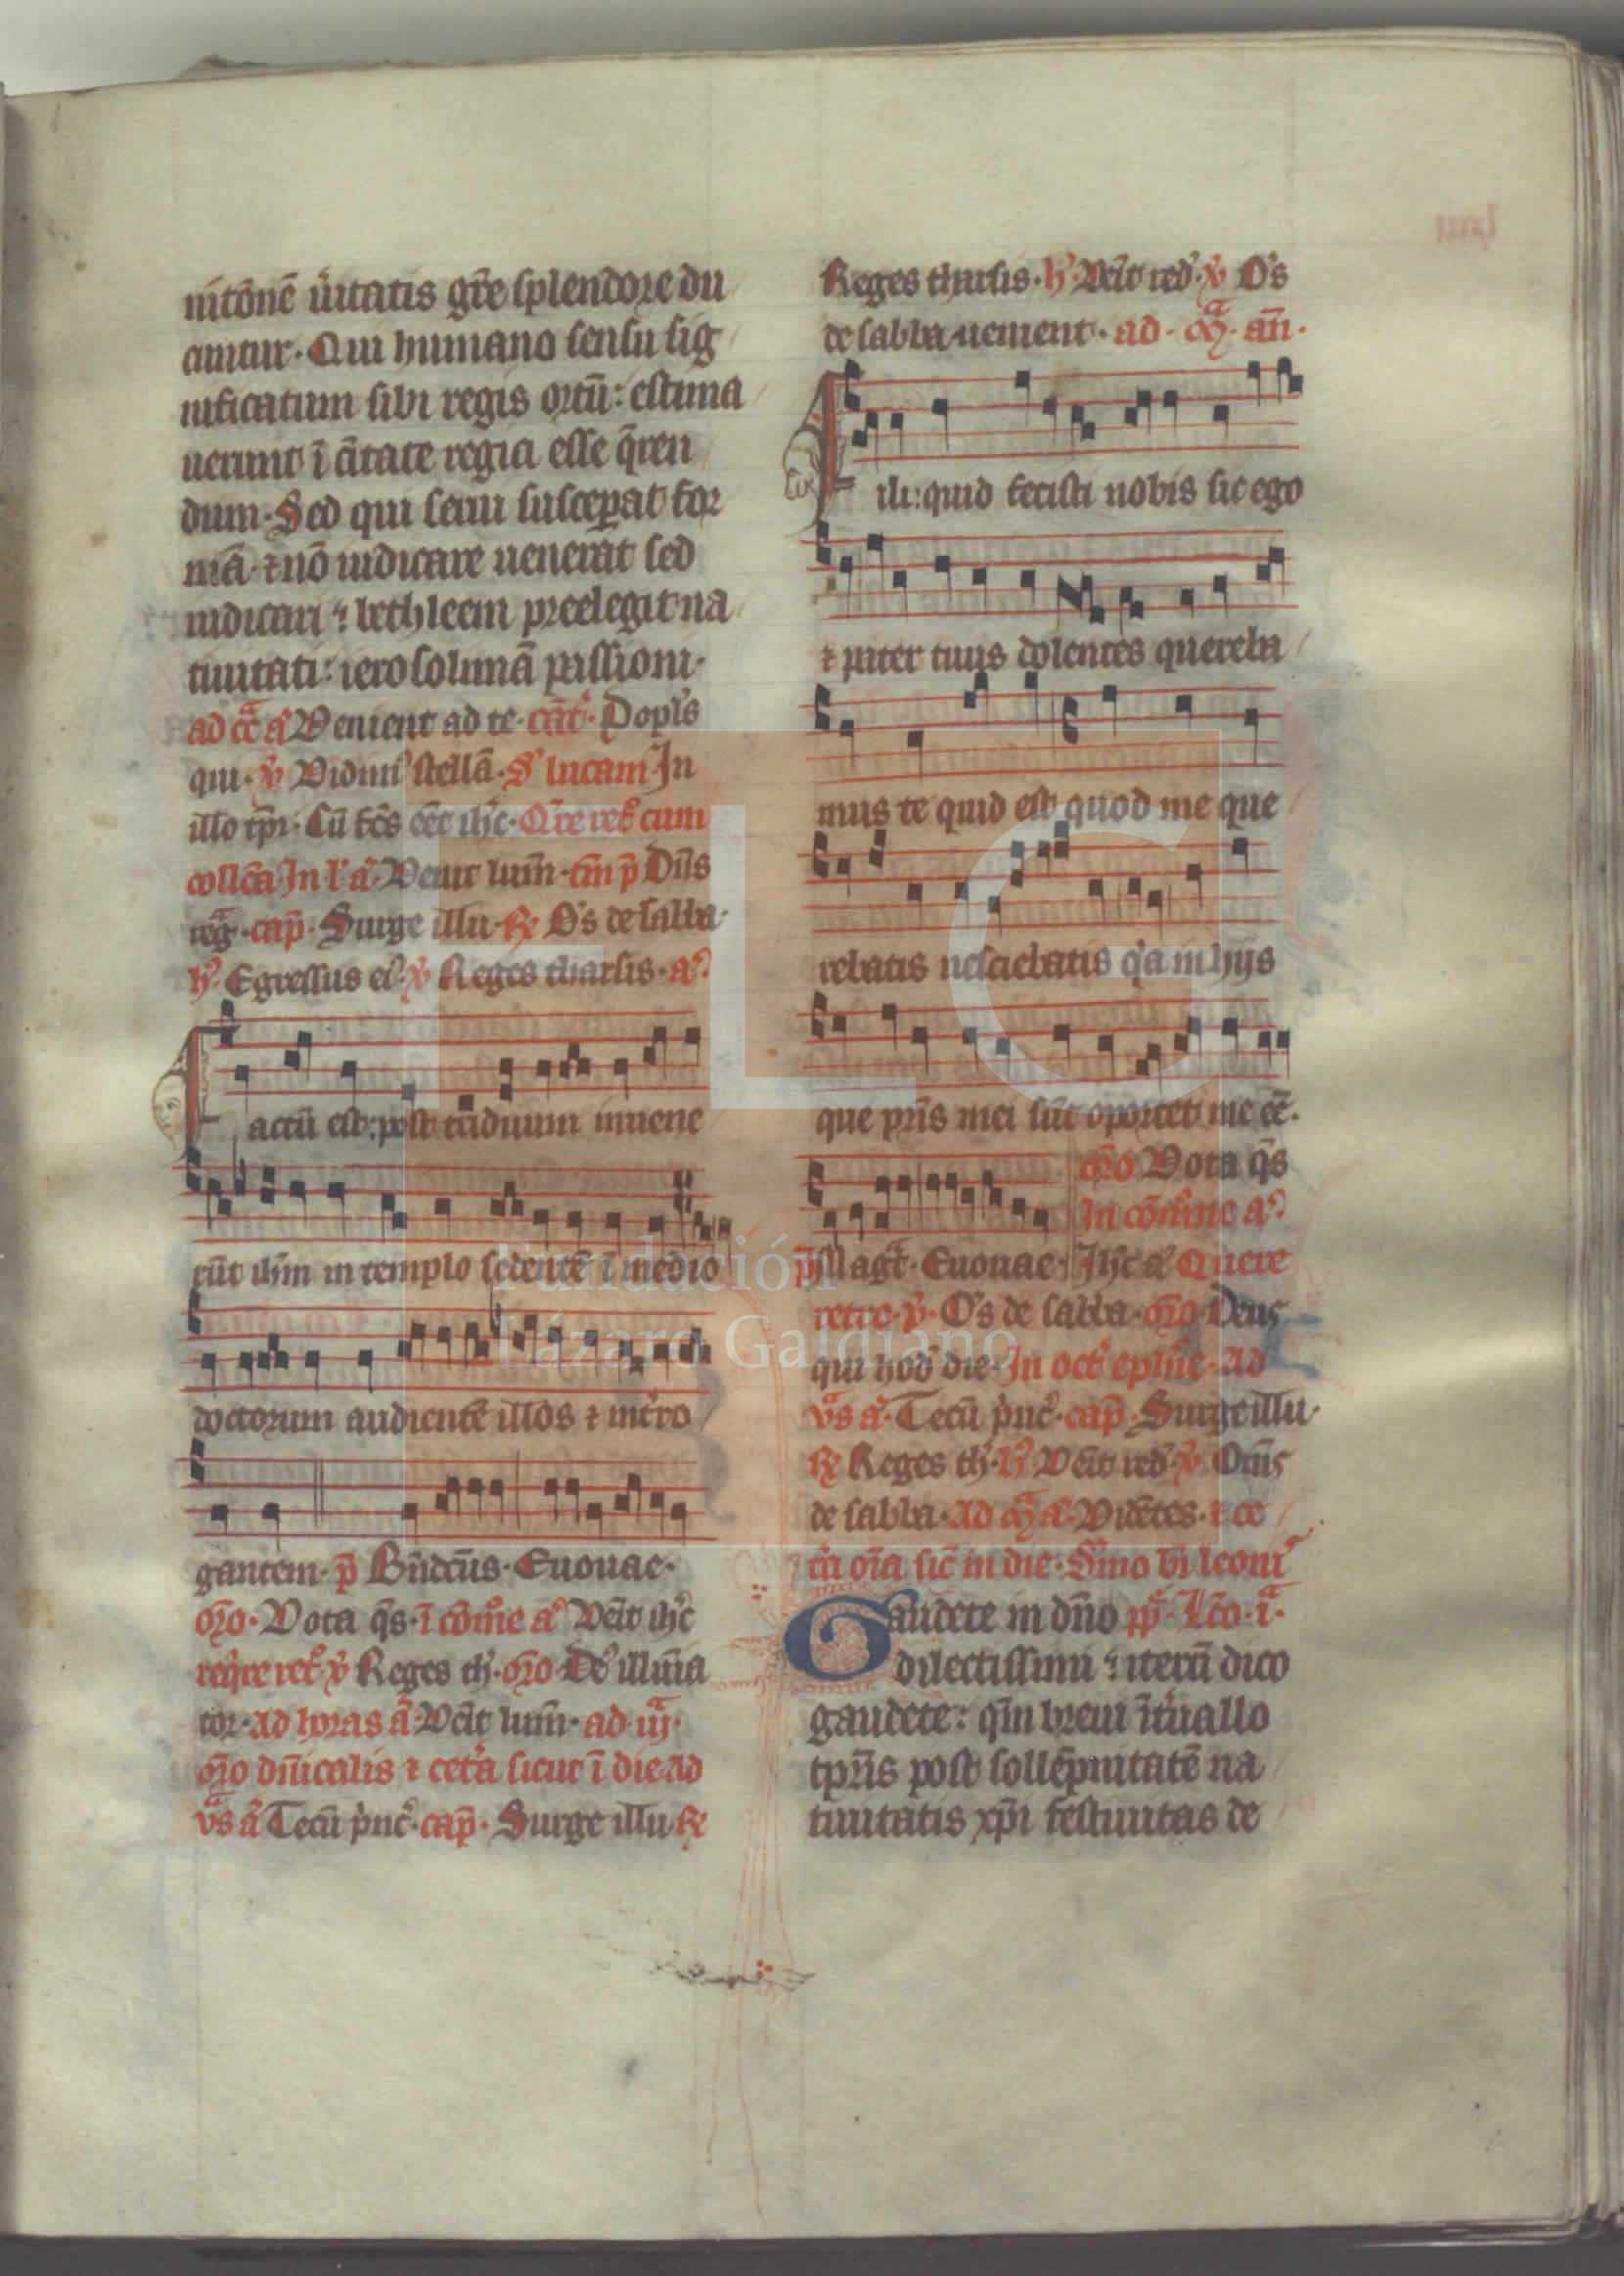 nitōnē ūitatis gr̄e splendore du
cuntur. Qui humano sensu sig
nificatum sibi regis ortū: estima
uerunt ī ciūtate regia esse q̄ren
dum. Sed qui serui susceperat for
mā ⁊ nō iudicare uenerat sed
iudicari: bethleem preelegit na
tiuitati: ierosolimā passioni.
ad cc̄ a' Venient ad te. cāt'. Popl's
qui. v̓ Vidim' stellā. S' lucam. In
illo tp̄r. Cū fc̄s eēt ih̄c. Q're ret° cum
coll'ca. In l' a'. Venit lum̄. tm̄ p̄ Dn̄s
reg̃. cap̄. Surge illu. ℟ O's de sabba.
h'. Egressus e'. v̓ Reges tharsis. a'.
actū est: post triduum inuene
rūt ih̄m in templo sedentē ī medio
doctorum audientē illos ⁊ int'ro
gantem. p̄ Bn̄dcūs. Euouae.
or̄o. Vota q̄s. ī cōm̄e a' Vēit ih̄c
req̄re ret° v̓ Reges th'. or̄o. De' illūia
tor. Ad horas a'. Vēit lum̄. ad. iij.
or̄o dn̄icalis ⁊ cet'a sicut ī die. Ad
v̄s a' Tecū p'nc'. cap̄. Surge illu. ℟
Reges tharsis. h'. Vēit red'. v̓ O's
de sabba uenient. ad. m̄. an̄.
ili: quid fecisti nobis sic ego
⁊ pater tuus dolentes quereba
mus te quid est quod me que
rebatis nesciebatis q'a in hijs
que pr̄is mei sūt oportet me eē.
or̄o Vota q̄s
In cōm̄e a'.
p̄s Magt̄. Euouae. Ih̄c a' Quere
retro. v̓. O's de sabba. or̄o. Deus
qui hod' die. In oct' epīhe. Ad
v̄s a'. Tecū p'nc'. cap̄. Surge illu.
℟ Reges th'. h'. Vēit red'. v̓ Om̄s
de sabba. Ad m̄ a'. Vidētes. ⁊ ce
t'a oīa sic̄ in die. S'mo bt̄i leonis
Gaudete in dn̄o pp̄. Lc̄o. i.
dilectissimi: iterū dico
gaudete: qm̄ breui īt'uallo
tp̄ris post sollēpnitatē na
tiuitatis xp̄i festiuitas de
FLG
Fundación
Lázaro Galdiano